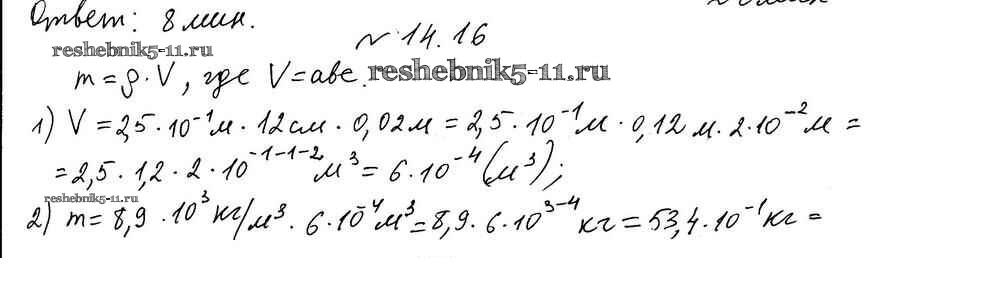 Ответ: 8 мин.
reshebnik5-11.ru
№ 14.16
m = ρ · V, где V = abc. reshebnik5-11.ru
1) V = 2,5 · 10⁻¹ м · 12 см · 0,02 м = 2,5 · 10⁻¹ м · 0,12 м · 2 · 10⁻² м =
= 2,5 · 1,2 · 2 · 10⁻¹⁻¹⁻² м³ = 6 · 10⁻⁴ (м³);
reshebnik5-11.ru
2) m = 8,9 · 10³ кг/м³ · 6 · 10⁻⁴ м³ = 8,9 · 6 · 10³⁻⁴ кг = 53,4 · 10⁻¹ кг =